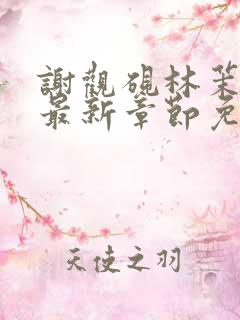 謝觀硯林笨
最新章節免
天使之羽